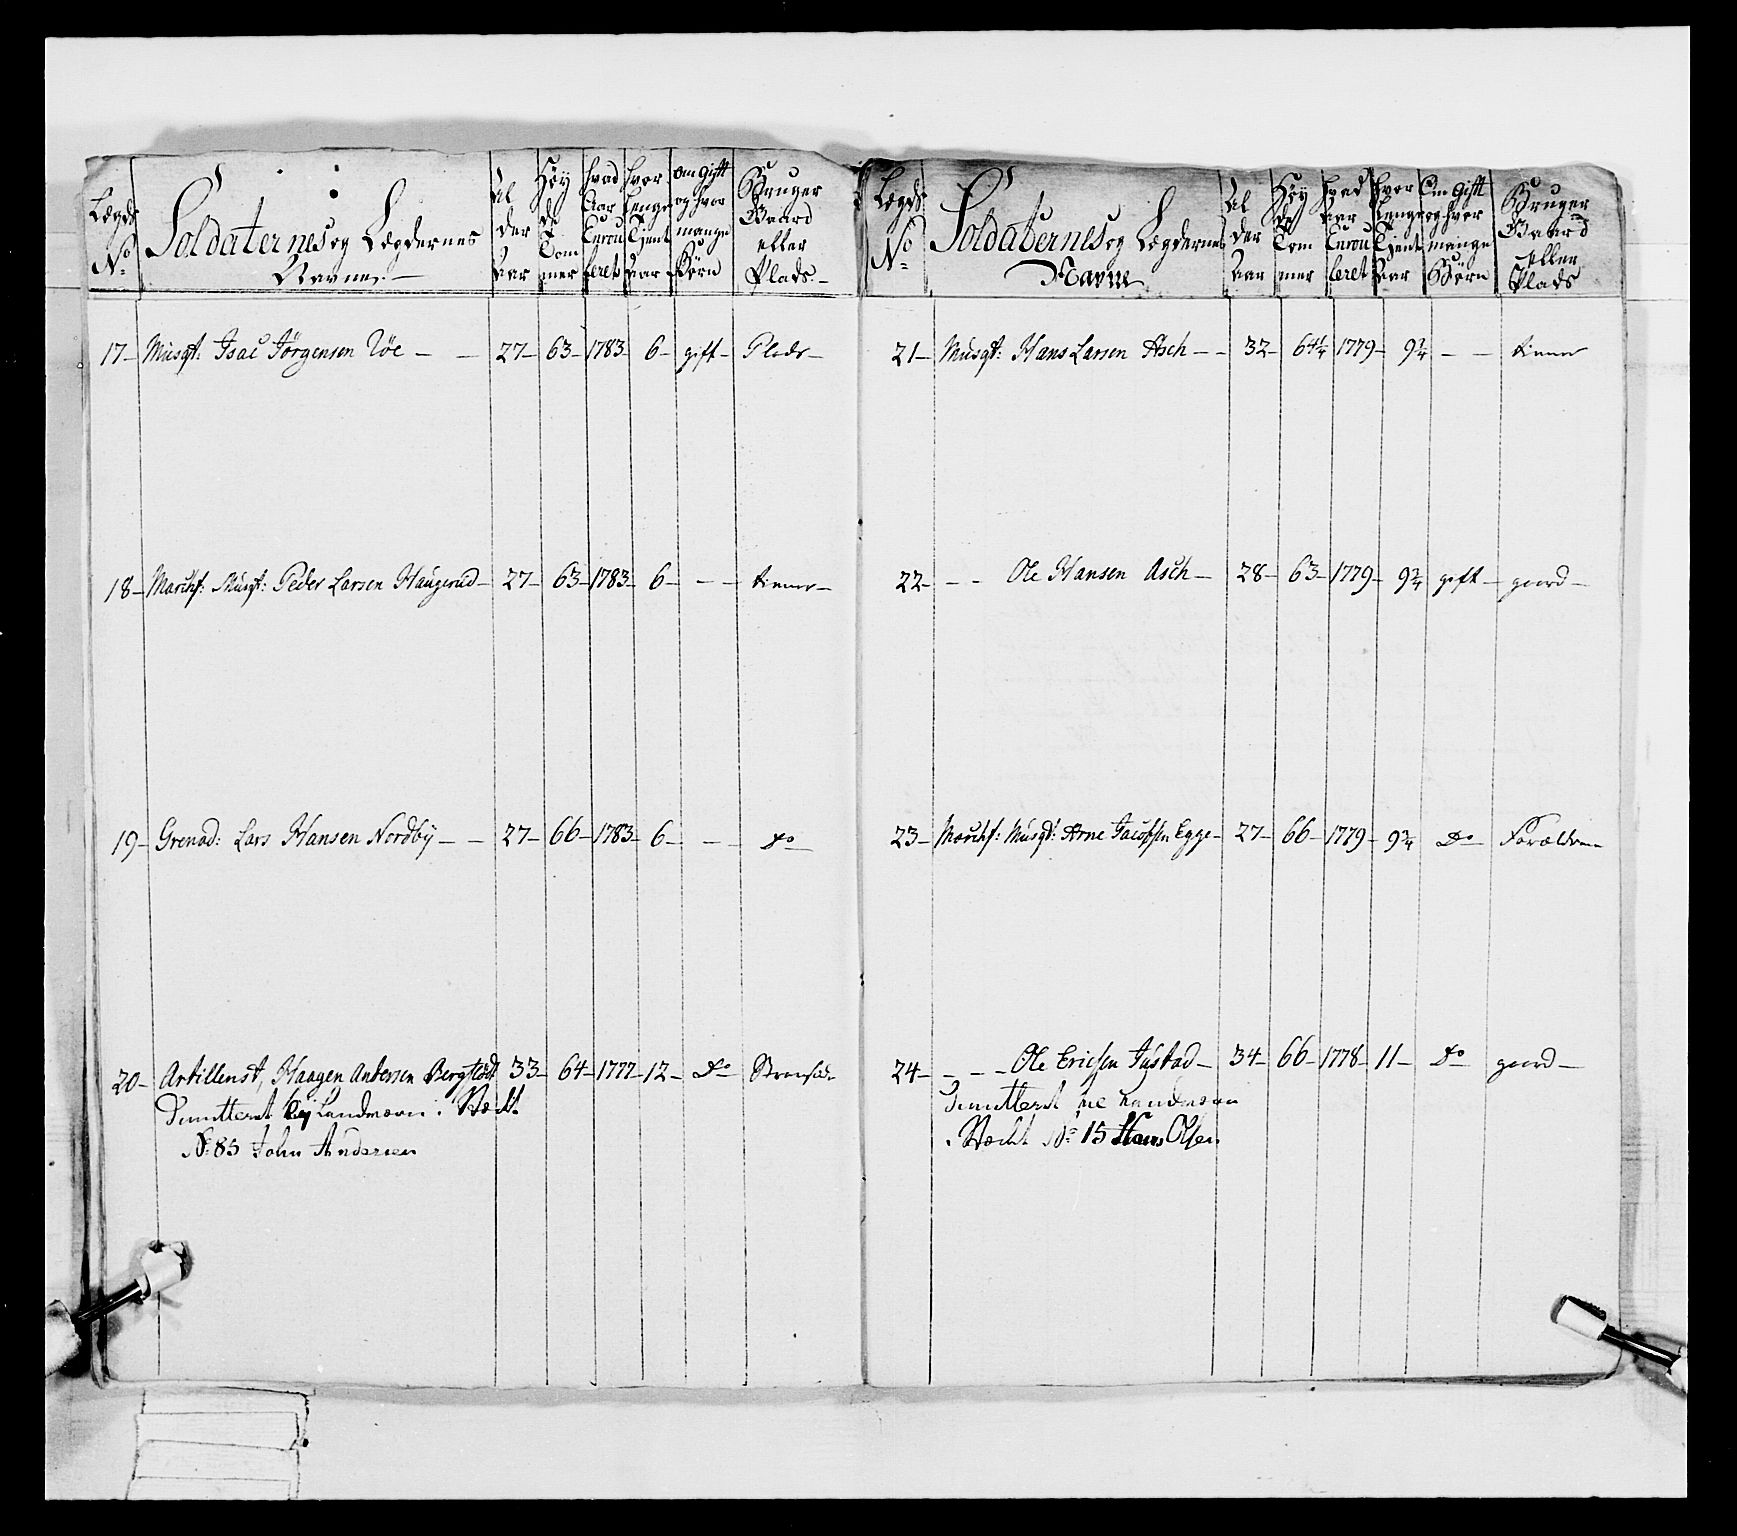 Lægds No
Soldaternes og Lægdernes Navne
Al der Aar
Høy de Tom mer
hvad Aar Enrou leret
hvor lenge Tjent Aar
om gift og hvor mange Børn
Bruger Gaard eller Plads
17 – Musqt: Isac Jørgensen – – 27 – 63 – 1783 – 6 – gift – Plads –
18 – Marchf: Musqt: Peder Larsen Haugerud – 27 – 63 – 1783 – 6 – – – tiener –
19 – Grenad: Lars Hansen Nordby – – 27 – 66 – 1783 – 6 – – – Do
20 – Artillerist, Haagen Andersen 33 – 64 – 1777 – 12 – Do
Dimitteret Landværn i Stæd
No 85 John Andersen
Lægds No
Soldaternes og Lægdernes Navne
Al der Aar
Høy de Tom mer
hvad Aar Enrou leret
hvor lenge Tjent Aar
Om gift og hvor mange Børn
Bruger Gaard eller Plads
21 – Musqt: Hans Larsen Asch – – 32 – 64¼ – 1779 – – – tiener
22 – – – Ole Hansen Asch – 28 – 63 – 1779 – gift – gaard –
23 – Marchf: Musqt: Arne Jacobsen Egge – 27 – 66 – 1779 – Do Forældrene
24 – – – Ole Ericsen – 34 – 66 – 1778 – 11 – Do gaard –
Dimitteret Landværn
No 15 Hans Olsen